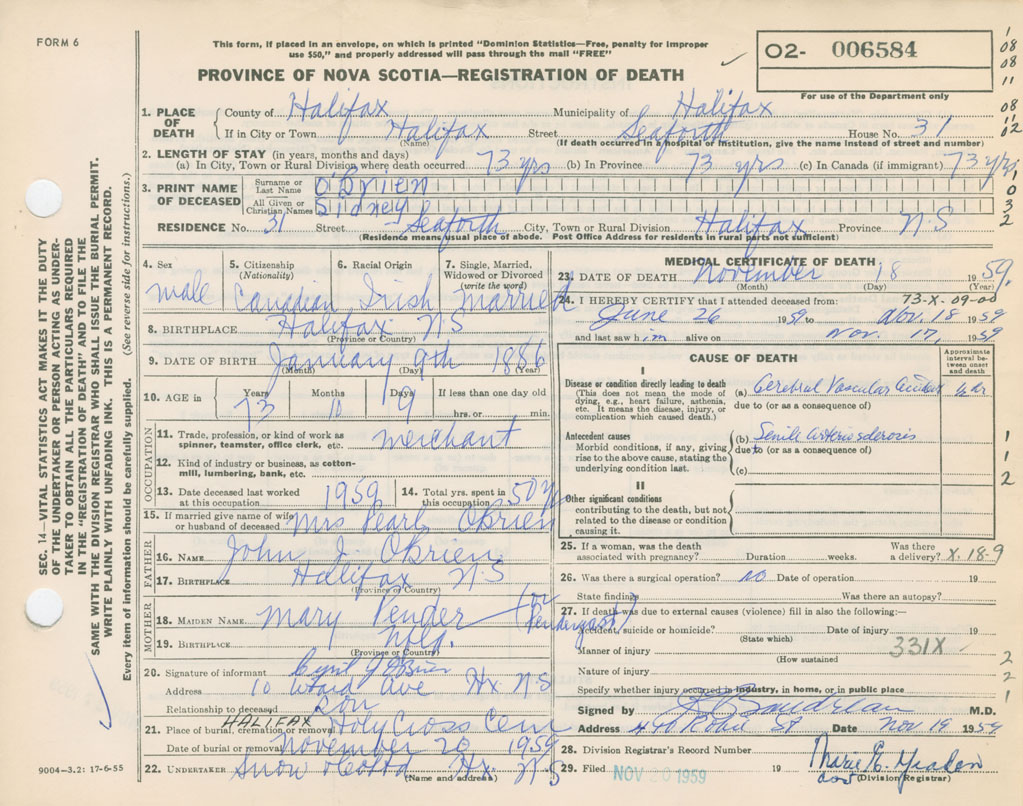 FORM 6
This form, if placed in an envelope, on which is printed "Dominion Statistics—Free, penalty for improper
use $50," and properly addressed will pass through the mail "FREE"
PROVINCE OF NOVA SCOTIA—REGISTRATION OF DEATH
O2- 006584
For use of the Department only
1. PLACE OF DEATH County of Halifax Municipality of Halifax
If in City or Town Halifax (Name) Street Seaforth House No. 31
(If death occurred in a hospital or institution, give the name instead of street and number)
2. LENGTH OF STAY (in years, months and days)
(a) In City, Town or Rural Division where death occurred 73 yrs (b) In Province 73 yrs (c) In Canada (if immigrant) 73 yrs
3. PRINT NAME OF DECEASED Surname or Last Name O'Brien
All Given or Christian Names Sidney
RESIDENCE No. 31 Street Seaforth City, Town or Rural Division Halifax Province N-S
(Residence means usual place of abode. Post Office Address for residents in rural parts not sufficient)
4. Sex 5. Citizenship (Nationality) 6. Racial Origin 7. Single, Married, Widowed or Divorced (write the word)
male Canadian Irish Married
8. BIRTHPLACE Halifax N-S
(Province or Country)
9. DATE OF BIRTH January 9th 1886
(Month) (Day) (Year)
10. AGE in Years Months Days If less than one day old
73 10 9 hrs. or min.
OCCUPATION
11. Trade, profession, or kind of work as spinner, teamster, office clerk, etc. merchant
12. Kind of industry or business, as cotton-mill, lumbering, bank, etc.
13. Date deceased last worked at this occupation 1959 14. Total yrs. spent in this occupation 50 y
15. If married give name of wife or husband of deceased Mrs Pearl O'Brien
FATHER
16. NAME John J O'Brien
17. BIRTHPLACE Halifax N-S
(Province or Country)
MOTHER
18. MAIDEN NAME Mary Pender (or Pendergast)
19. BIRTHPLACE Nfld.
(Province or Country)
20. Signature of informant Cyril J O'Brien
Address 10 Ward Ave Hx N-S
Relationship to deceased Son
21. Place of burial, cremation or removal HALIFAX Holy Cross Cem
Date of burial or removal November 20 1959
22. UNDERTAKER Snow & Co Ltd Hx N-S
(Name and address)
MEDICAL CERTIFICATE OF DEATH
23. DATE OF DEATH November 18 1959.
(Month) (Day) (Year)
24. I HEREBY CERTIFY that I attended deceased from: 73-X-09-00
June 26 1959 to Nov. 18 1959
and last saw him alive on Nov. 17, 1959
CAUSE OF DEATH
Approximate interval between onset and death
I
Disease or condition directly leading to death
(This does not mean the mode of dying, e.g., heart failure, asthenia, etc. It means the disease, injury, or complication which caused death.)
(a) Cerebral Vascular Accident ½ dr
due to (or as a consequence of)
Antecedent causes
Morbid conditions, if any, giving rise to the above cause, stating the underlying condition last.
(b) Senile arteriosclerosis
due to (or as a consequence of)
(c)
II
Other significant conditions
contributing to the death, but not related to the disease or condition causing it.
25. If a woman, was the death associated with pregnancy? Duration weeks. Was there a delivery? X.18-9
26. Was there a surgical operation? no Date of operation 19
State findings Was there an autopsy?
27. If death was due to external causes (violence) fill in also the following:—
Accident, suicide or homicide? Date of injury 19
(State which)
Manner of injury 331X
(How sustained)
Nature of injury
Specify whether injury occurred in industry, in home, or in public place
Signed by Boudreau M.D.
Address 440 Robie St Date Nov 19 1959
28. Division Registrar's Record Number
29. Filed NOV 20 1959 19
(Division Registrar)
SEC. 14—VITAL STATISTICS ACT MAKES IT THE DUTY
OF THE UNDERTAKER OR PERSON ACTING AS UNDER-
TAKER TO OBTAIN ALL THE PARTICULARS REQUIRED
IN THE "REGISTRATION OF DEATH" AND TO FILE THE
SAME WITH THE DIVISION REGISTRAR WHO SHALL ISSUE THE BURIAL PERMIT.
WRITE PLAINLY WITH UNFADING INK. THIS IS A PERMANENT RECORD.
Every item of information should be carefully supplied. (See reverse side for instructions.)
9004-3.2: 17-6-55
1
08
08
11
08
11
02
1
0
3
2
1
1
2
2
2
1